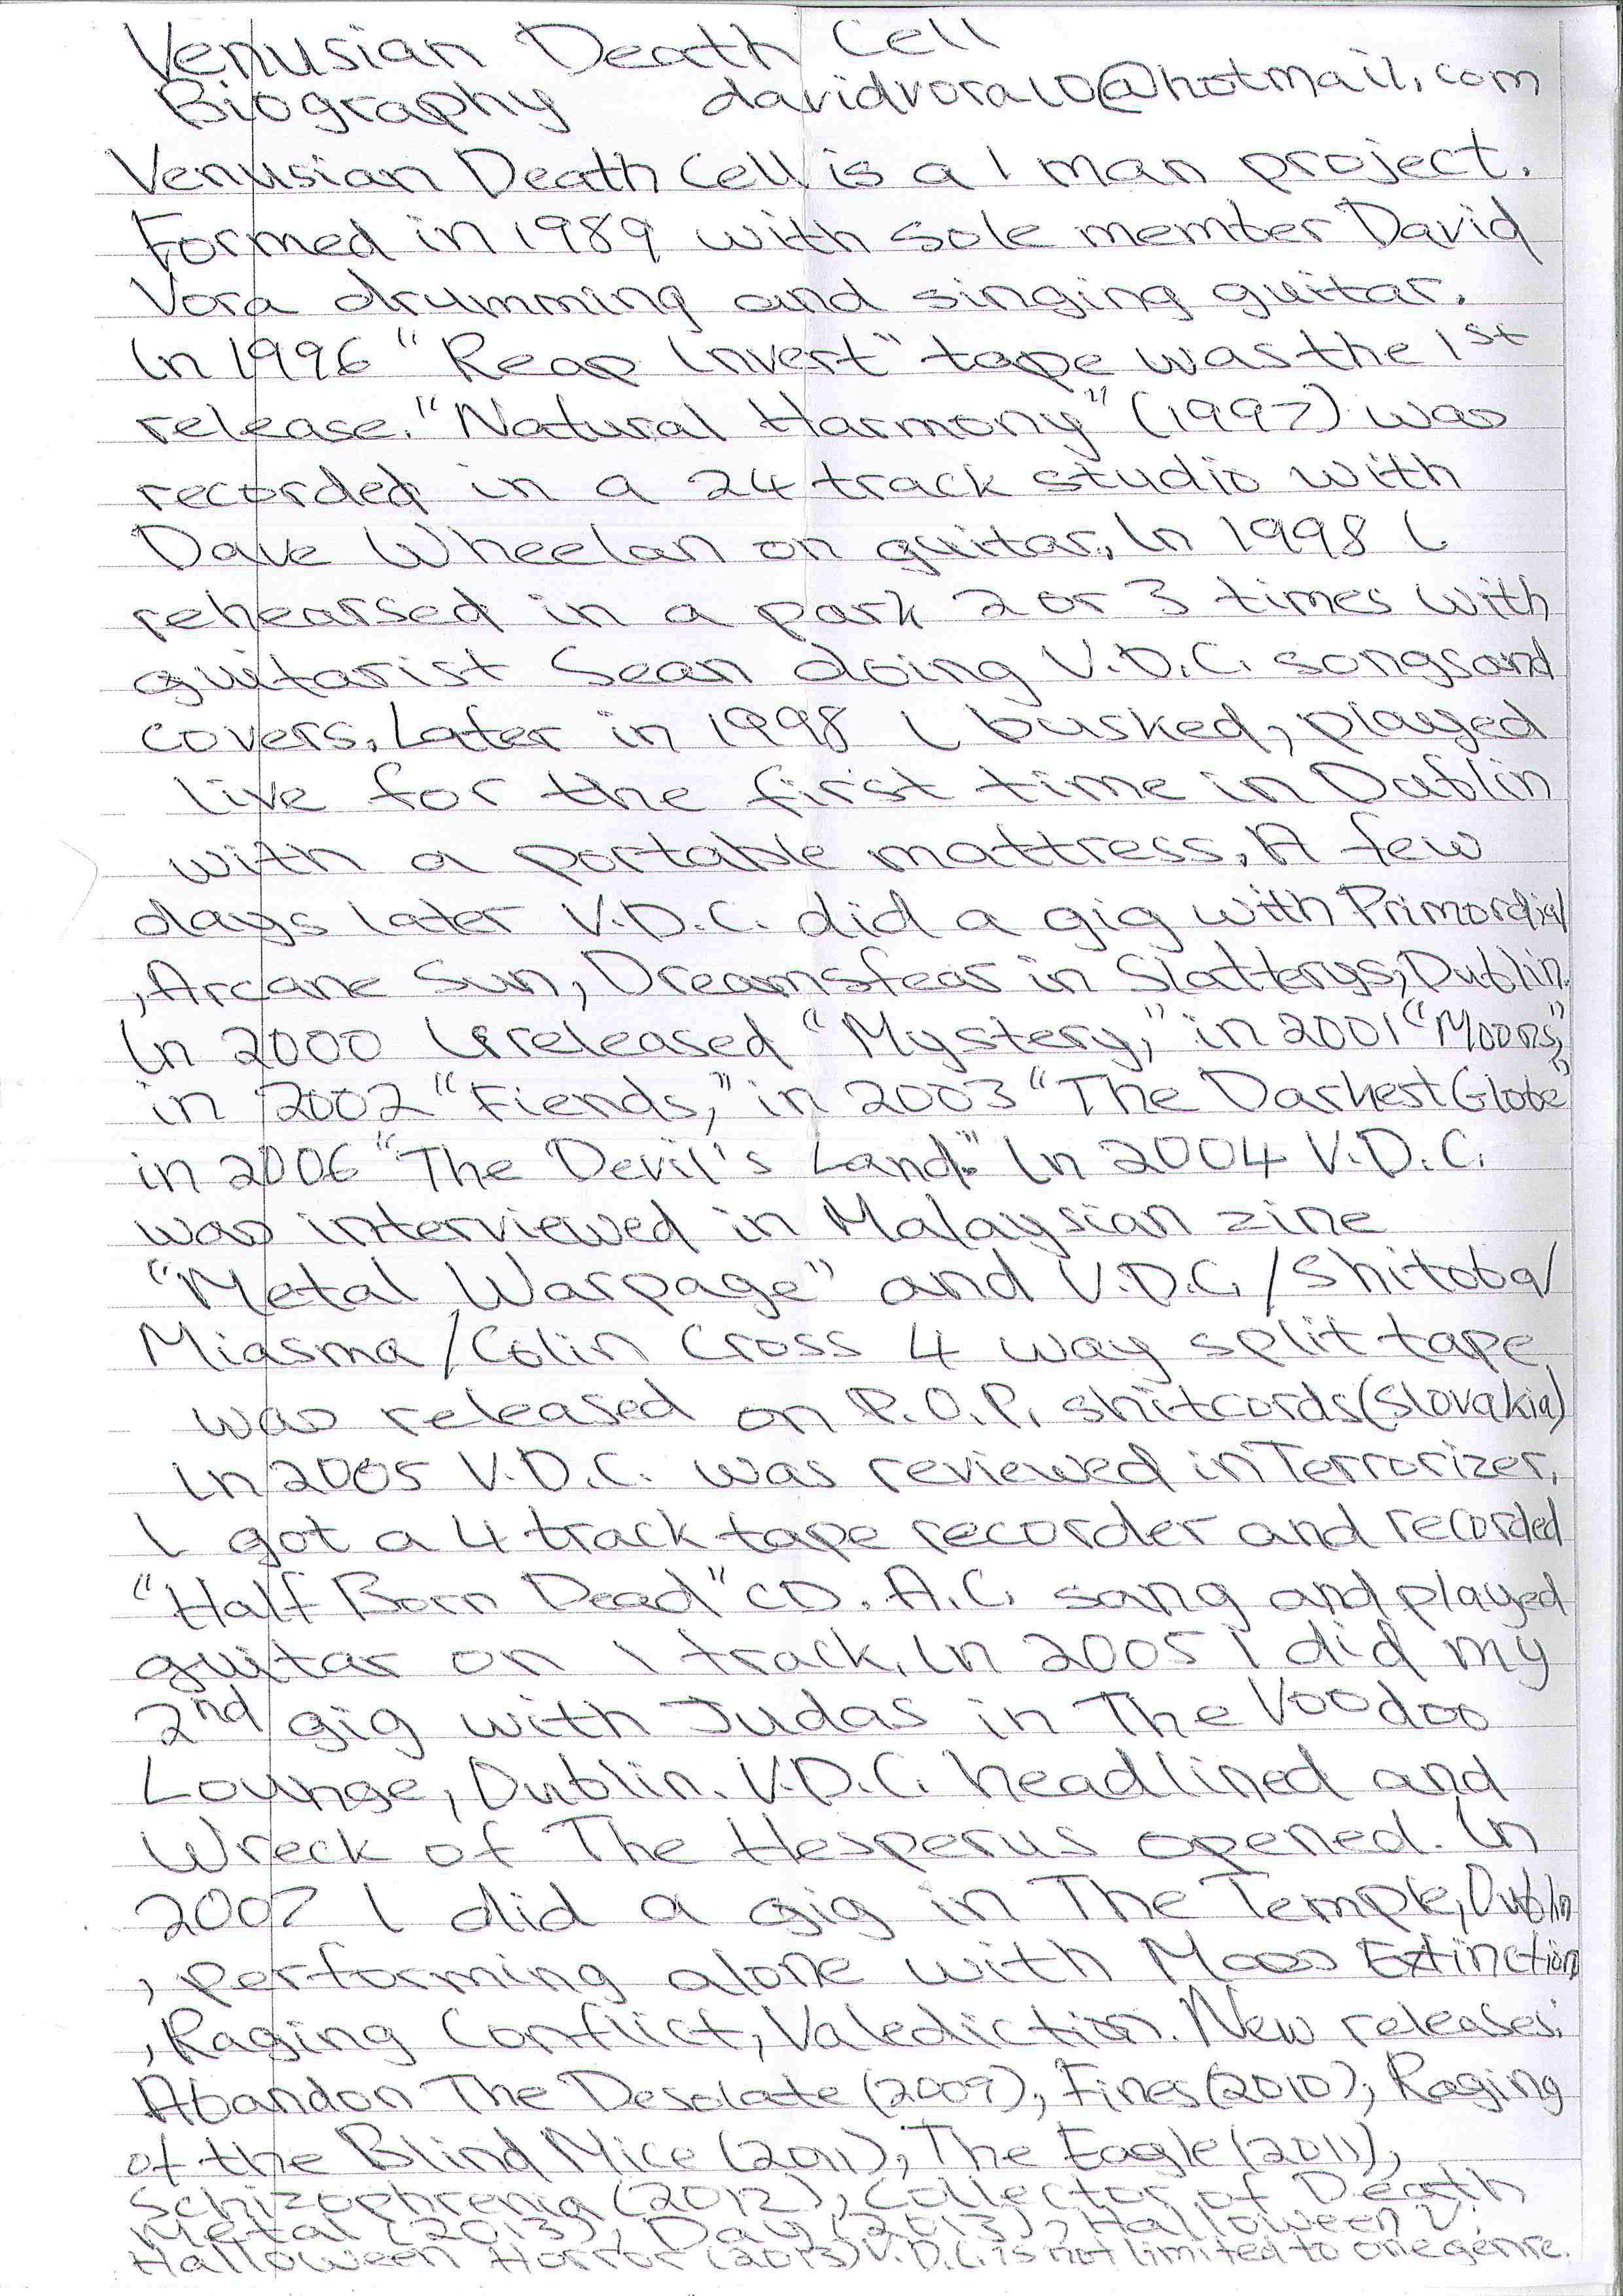 Venusian Death Cell
Biography davidvora10@hotmail.com
Venusian Death Cell is a 1 man project.
Formed in 1989 with sole member David
Vora drumming and singing guitar.
In 1996 "Reap Invert" tape was the 1st
release. "Natural Harmony" (1997) was
recorded in a 24 track studio with
Dave Wheelan on guitar. In 1998 I
rehearsed in a park 2 or 3 times with
guitarist Sean doing V.D.C. songs and
covers. Later in 1998 I busked, played
live for the first time in Dublin
with a portable mattress. A few
days later V.D.C. did a gig with Primordial
, Arcane Sun, Dreamsfear in Slatterys, Dublin.
In 2000 I released "Mystery," in 2001 "Moons,"
in 2002 "Fiends," in 2003 "The Darkest Globe"
in 2006 "The Devil's Land." In 2004 V.D.C.
was interviewed in Malaysian zine
"Metal Warpage" and V.D.C. / Shitoba/
Miasma / Colin Cross 4 way split tape
was released on P.O.P. shitcords (Slovakia)
In 2005 V.D.C. was reviewed in Terrorizer.
I got a 4 track tape recorder and recorded
"Half Born Dead" CD. A.C. sang and played
guitar on 1 track. In 2005 I did my
2nd gig with Judas in The Voodoo
Lounge, Dublin. V.D.C. headlined and
Wreck of The Hesperus opened. In
2007 I did a gig in The Temple, Dublin
, performing alone with Mass Extinction
, Raging Conflict, Valediction. New releases:
Abandon The Desolate (2009), Fines (2010), Raging
of the Blind Mice (2011), The Eagle (2011),
Schizophrenia (2012), Collector of Death
Metal (2013), Day (2013), Halloween V:
Halloween Horror (2013) V.D.C. is not limited to one genre.